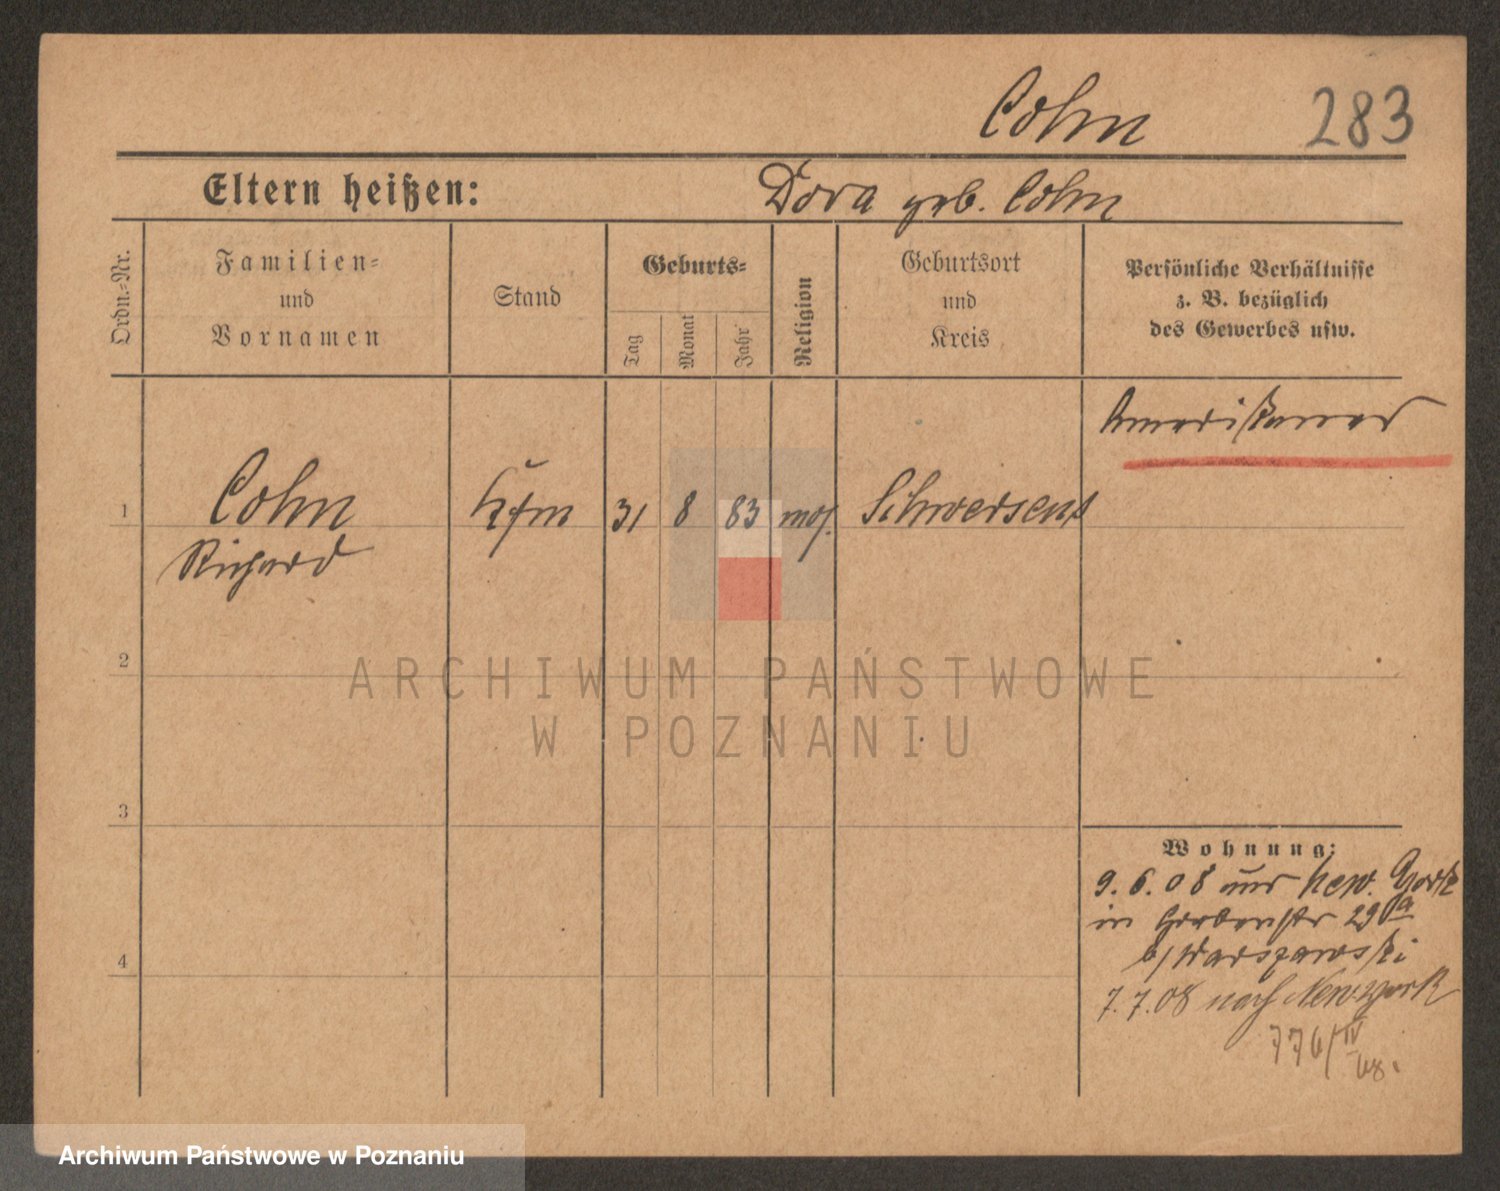 Cohn 283
Eltern heißen: Dora geb. Cohn
Ordn.-Nr.
Familien-
und
Vornamen
Stand
Geburts-
Tag
Monat
Jahr
Religion
Geburtsort
und
Kreis
Persönliche Verhältnisse
z. B. bezüglich
des Gewerbes usw.
Amerikaner
1 Cohn Kfm 31 8 83 mos. Schwersenz
Richard
2
ARCHIWUM PAŃSTWOWE
W POZNANIU
3
Wohnung:
9.6.08 aus New. York
in Gerberstr 29a
b/Warszawski
4
7.7.08 nach New-york
776/IV
08.
Archiwum Państwowe w Poznaniu